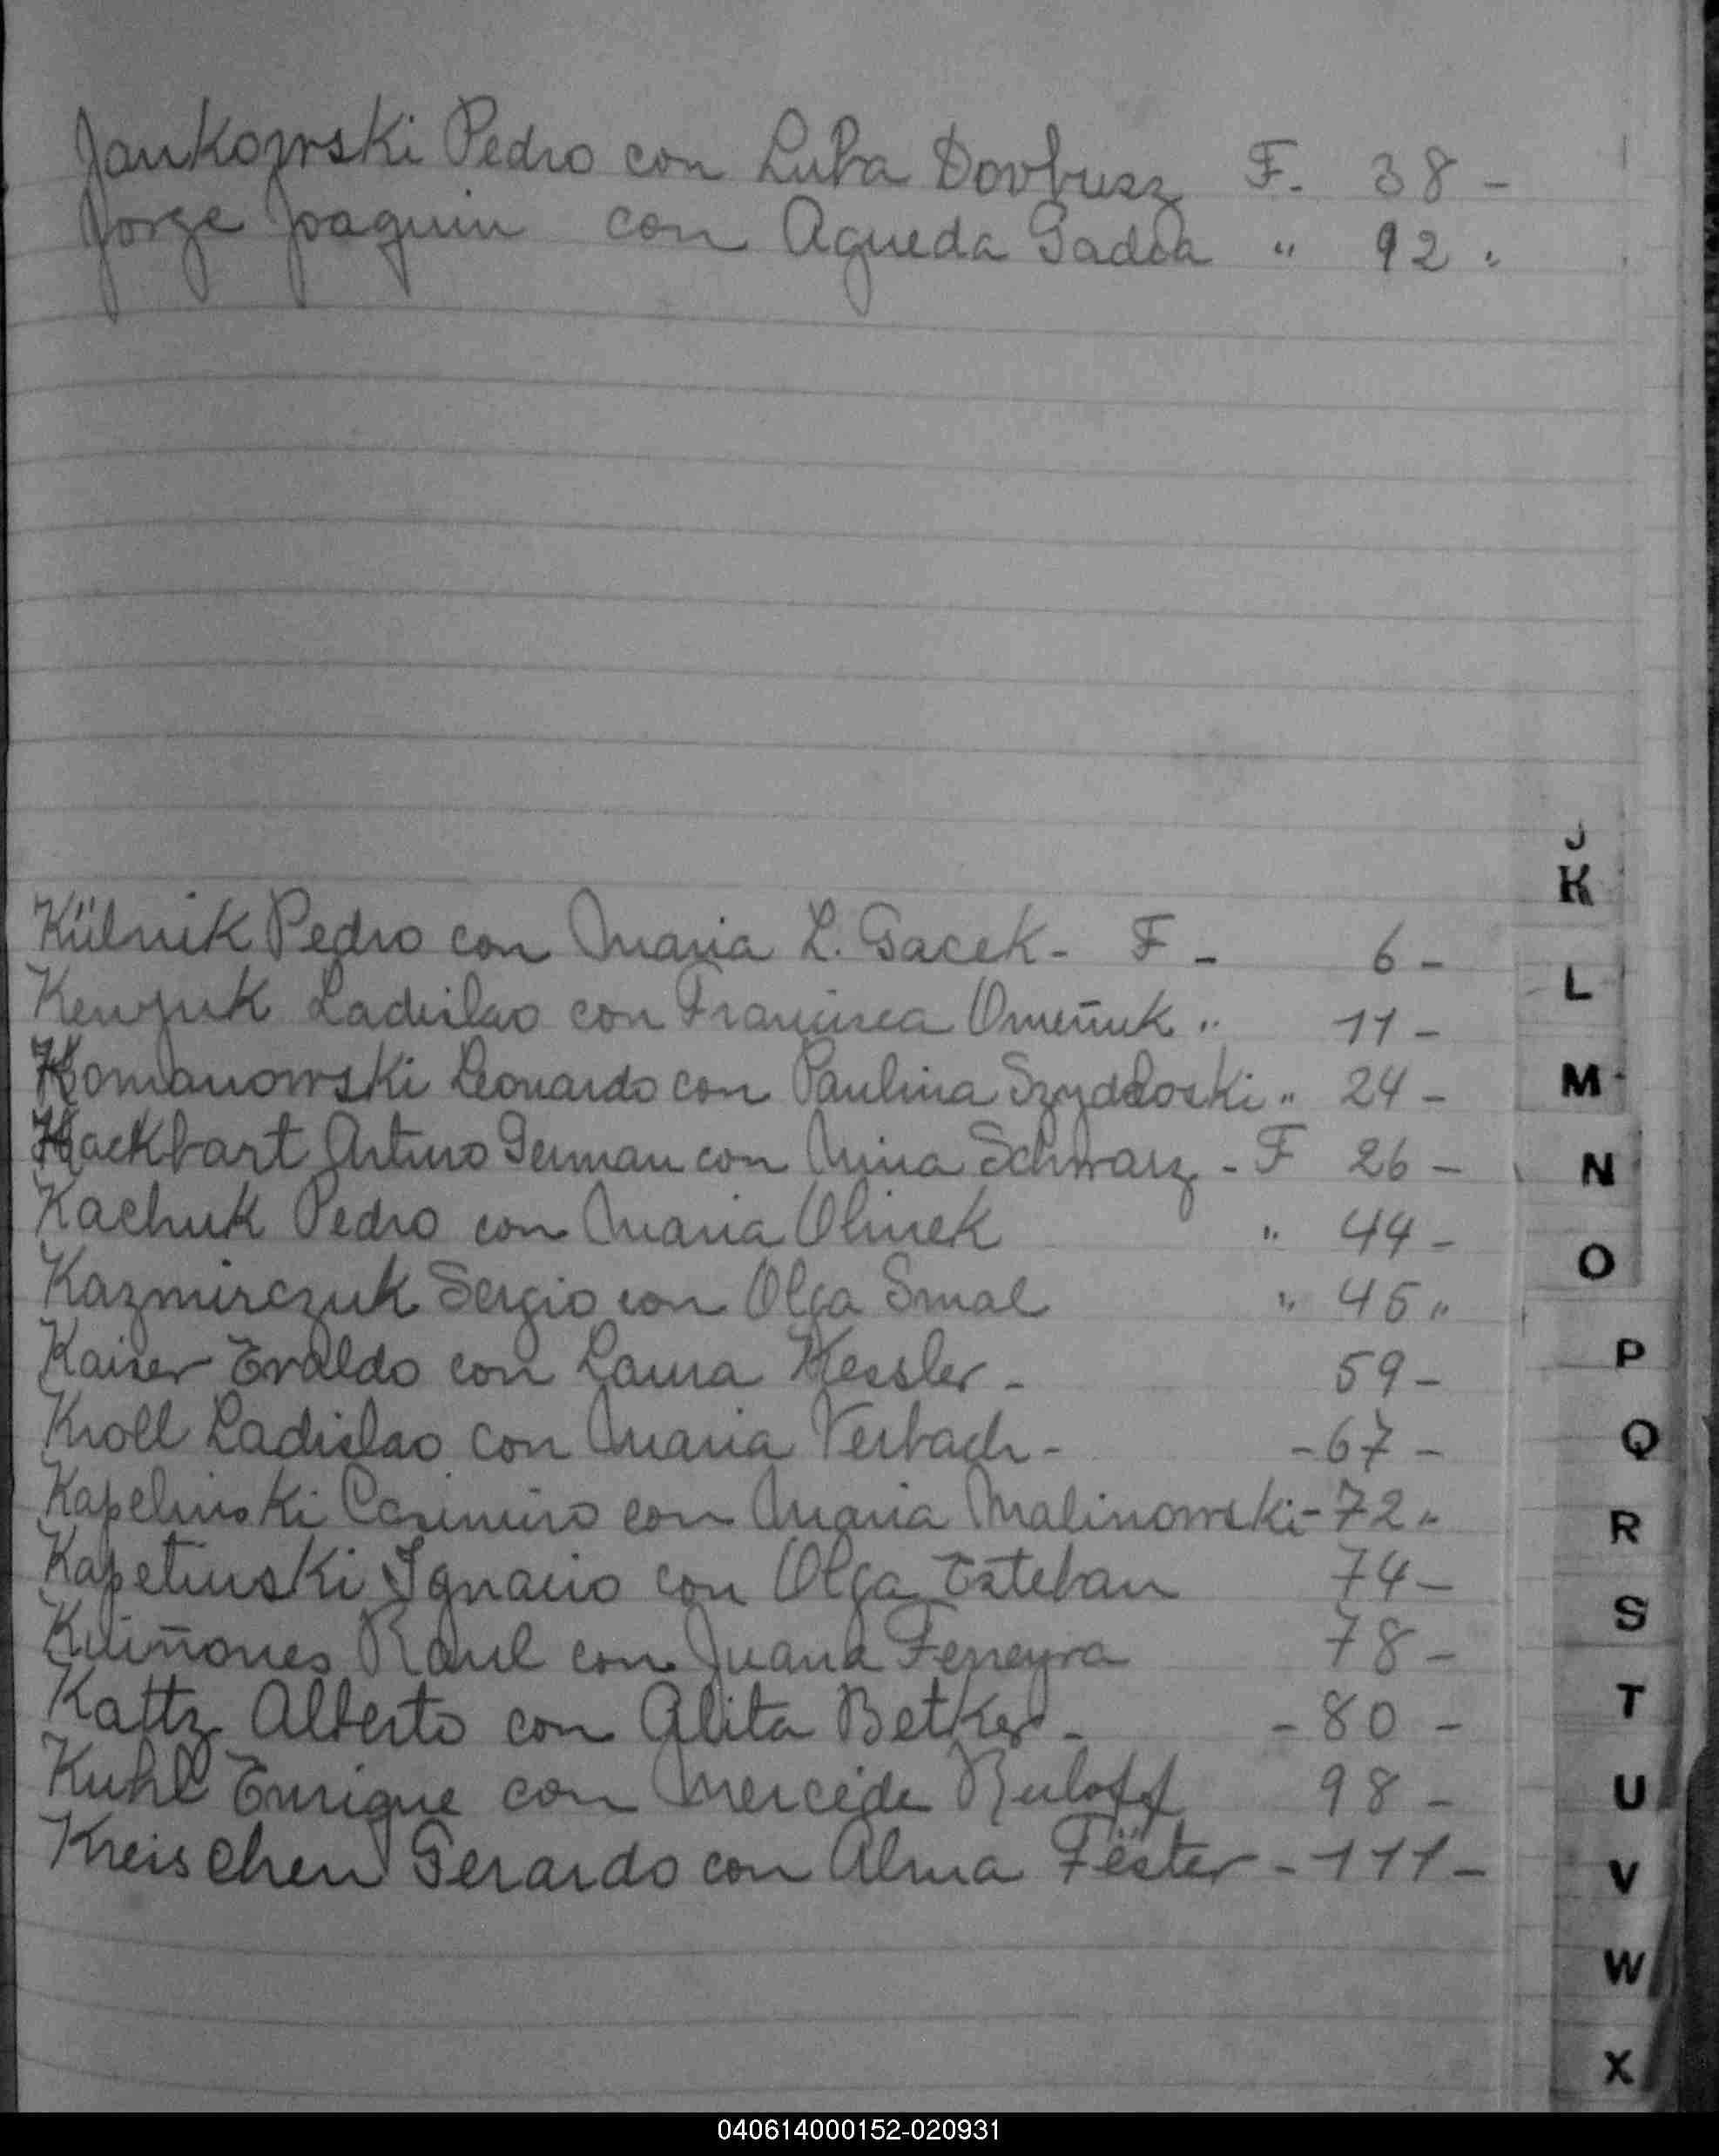 Jankowski Pedro con Luba Dovbusz F. 38 -
Jorge Joaquin con Agueda Gadea " 92 "
J
K
Külnik Pedro con Maria L. Gacek - F - 6 -
L
Kewjuk Ladislao con Francisca Omeñuk " 11 -
Komanowski Leonardo con Paulina Szydloski " 24 -
M
Hackbart Arturo German con Mina Schwarz - F 26 -
N
Kachuk Pedro con Maria Olinek " 44 -
O
Kazmirczuk Sergio con Olga Smal " 45 "
Kaiser Evaldo con Laura Kessler - 59 -
P
Kroll Ladislao con Maria Verbach - - 67 -
Q
Kapelinski Casimiro con Maria Malinowski - 72 "
R
Kapetinski Ignacio con Olga Esteban 74 -
S
Kuiñones Raul con Juana Ferreyra 78 -
T
Kattz Alberto con Alita Betker - - 80 -
Kuhl Enrique con Mercede Ruloff 98 -
U
Kreischen Gerardo con Alma Fëster - 111 -
V
W
X
040614000152-020931